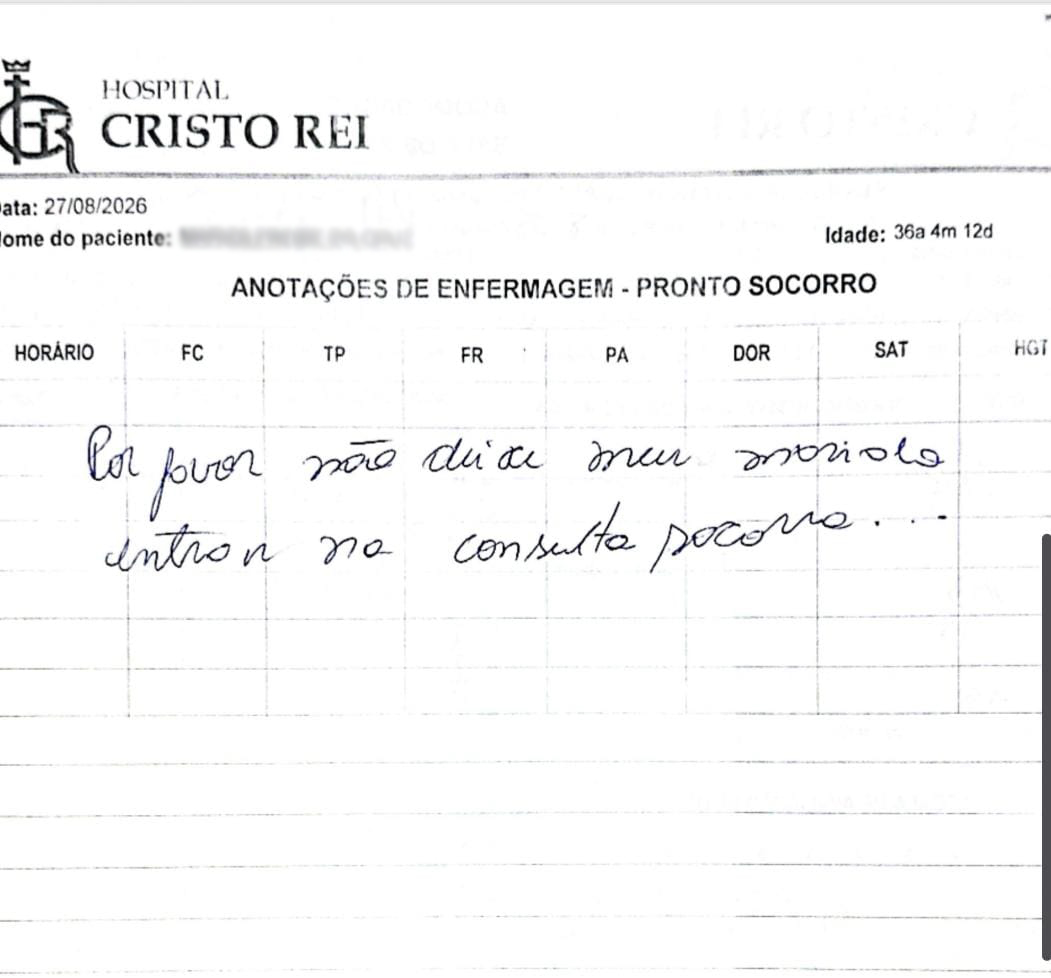 HOSPITAL
CRISTO REI
Data: 27/08/2026
Nome do paciente:
Idade: 36a 4m 12d
ANOTAÇÕES DE ENFERMAGEM - PRONTO SOCORRO
HORÁRIO FC TP FR PA DOR SAT HGT
Por favor não deixe meu marido
entrar na consulta socorro....